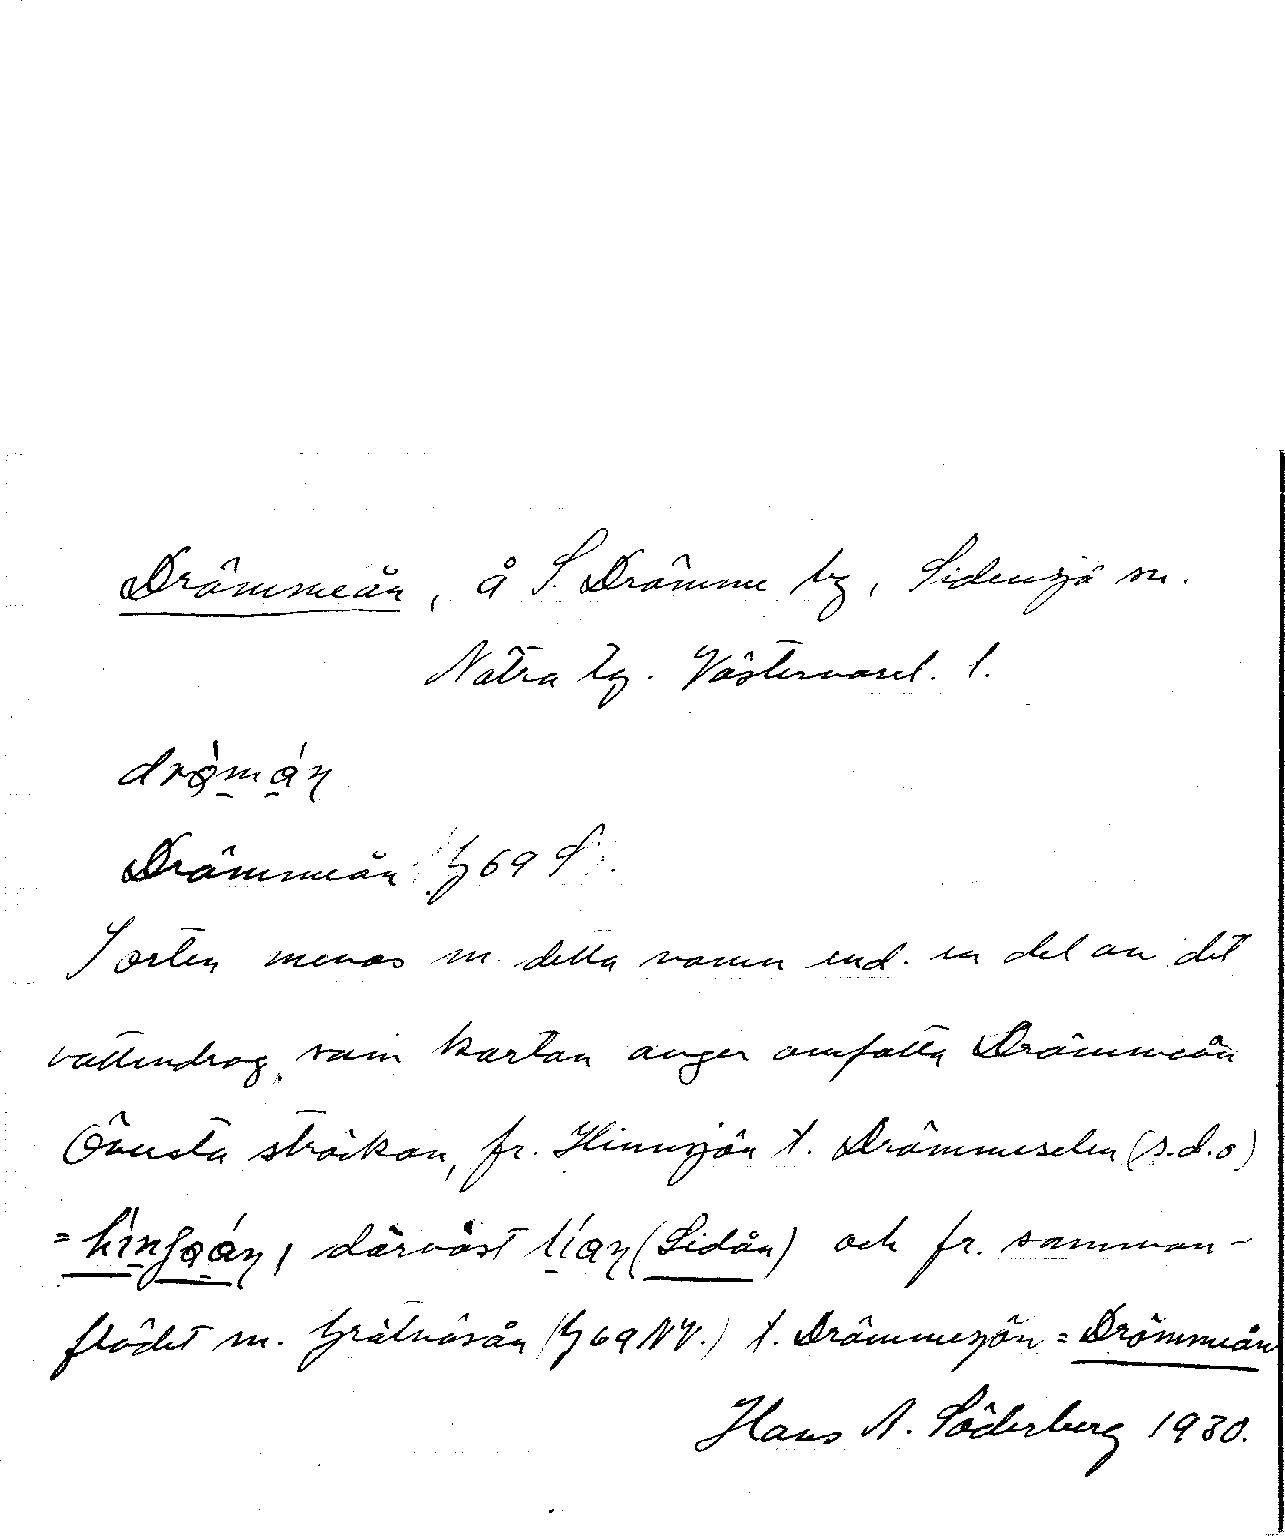 Drömmeån, å S. Drömme by, Sidensjö sn.
Nätra tg. Västernorrl. l.
Drömmeån 69 S
I orten menas m. detta namn end. en del av det
vattendrag, som kartan anger omfatta Drömmeån
Översta sträckan, fr. Hinnsjön t. Drömmeselen (s.d.o)
= därväst (Sidån) och fr. samman-
flödet m. (69 NV.) t. Drömmesjön = Drömmeån
Hans A. Söderberg 1930.